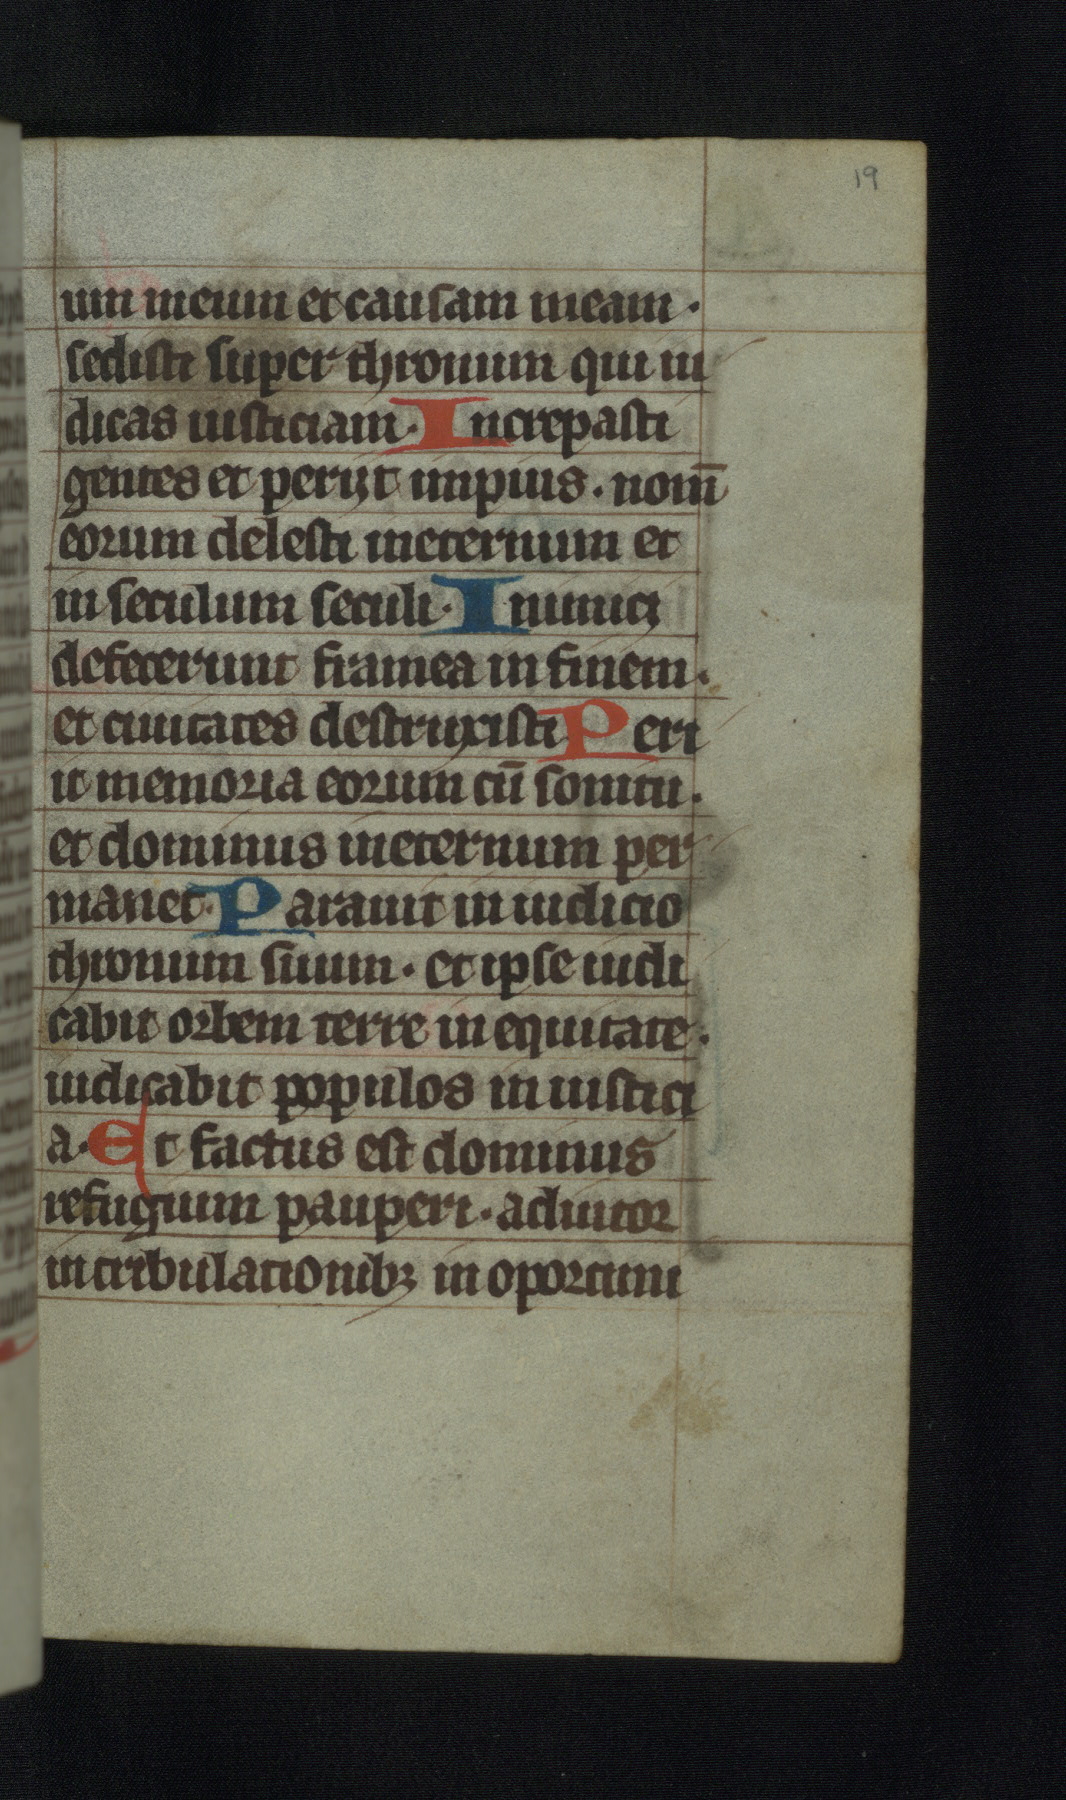 19
um meum et causam meam ·
sedisti super thronum qui iu
dicas iusticiam · Increpasti
gentes et perijt impius · nom̅
eorum delesti ineternum et
in seculum seculi · Inimici
defecerunt framea in finem ·
et ciuitates destruxisti Peri
it memoria eorum cu̅ sonitu ·
et dominus ineternum per
manet · Parauit in iudicio
thronum suum · et ipse iudi
cabit orbem terre in equitate ·
iudicabit populos in iustici
a · Et factus est dominus
refugium pauperi · adiutor
in tribulationibꝫ in oportuni